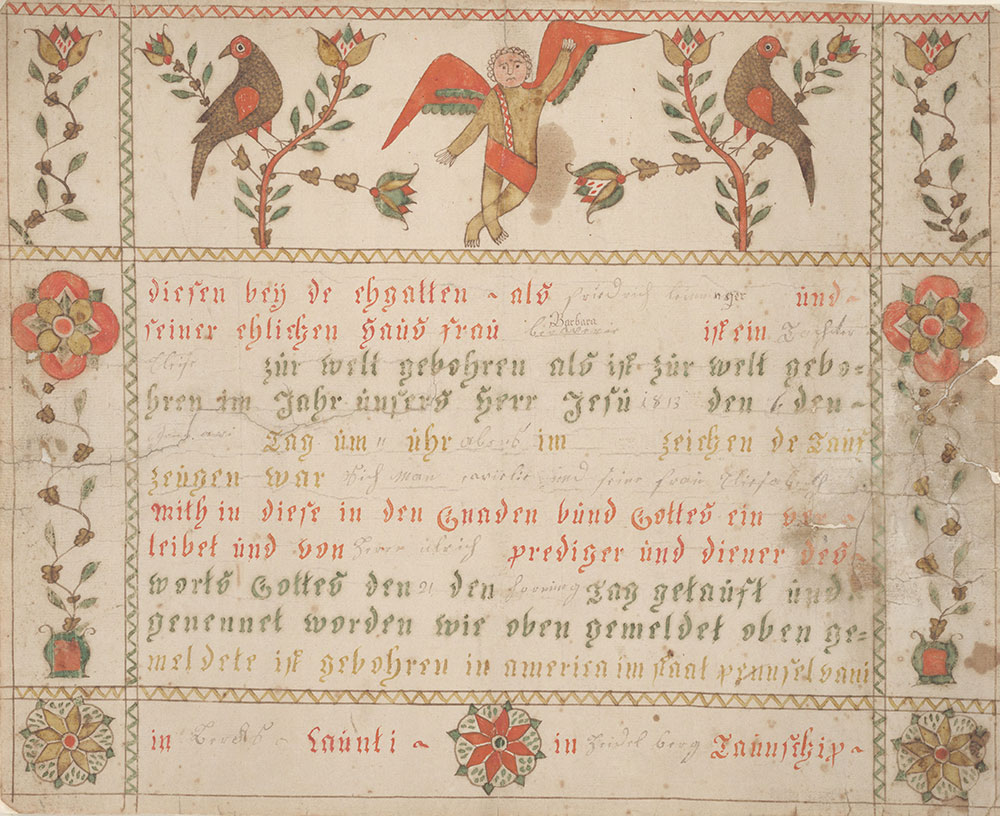 diesen beÿ de ehgatten - als Friedrich ünd-
seiner ehlichen Haüs frau Barbara ist ein Tochter
zür welt gebohren als ist zür welt gebo-
hren im Jahr ünsers Herr Jesü 1813 den 6 den-
Tag üm 11 ühr abens im zeichen de Taüf
zeügen war Hich man und seine frau Eliesabeth
mith in diese in den Gnaden bünd Gottes ein ver-
leibet ünd von Herr ulrich prediger ünd diener des
worts Gottes den 21 den hornung Tag getaüft ünd
genennet worden wie oben gemeldet oben ge=
meldete ist gebohren in america im staat pennselvani
in Bercks - Caünti - in Heidel berg Taunschip -